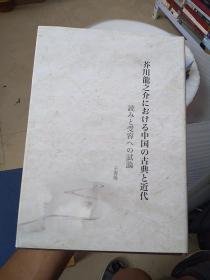 芥川龍之介における中国の古典と近代
読みと受容への試論